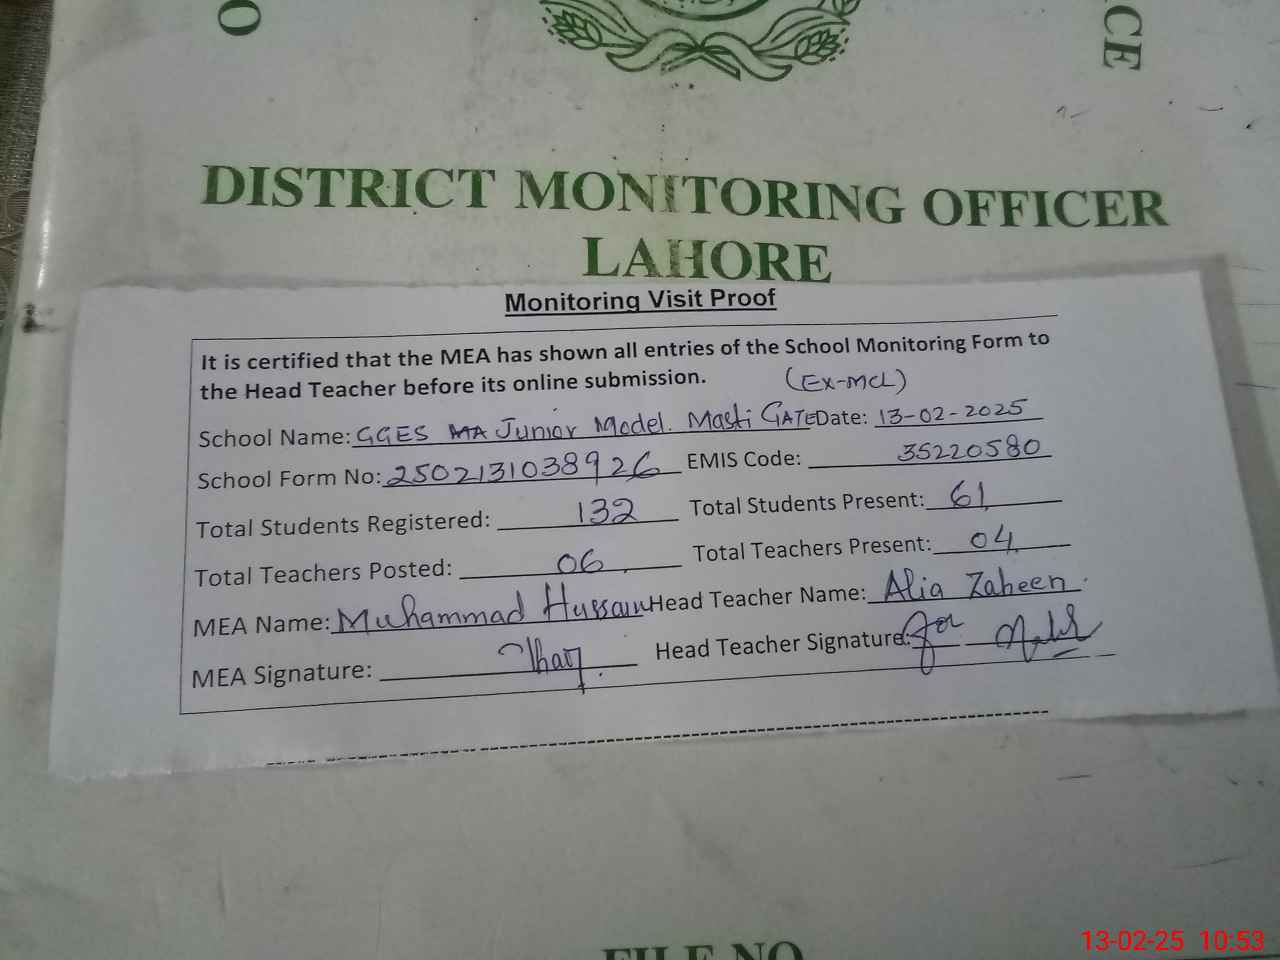 O
CE
DISTRICT MONITORING OFFICER
LAHORE
Monitoring Visit Proof
It is certified that the MEA has shown all entries of the School Monitoring Form to
the Head Teacher before its online submission. (EX-MCL)
School Name: GGES MA Junior Model. Masti GATE Date: 13-02-2025
School Form No: 2502131038926 EMIS Code: 35220580
Total Students Registered: 132 Total Students Present: 61
Total Teachers Posted: 06 Total Teachers Present: 04
MEA Name: Muhammad Hussain Head Teacher Name: Alia Zaheen
MEA Signature: Head Teacher Signature: for
FILE NO
13-02-25 10:53